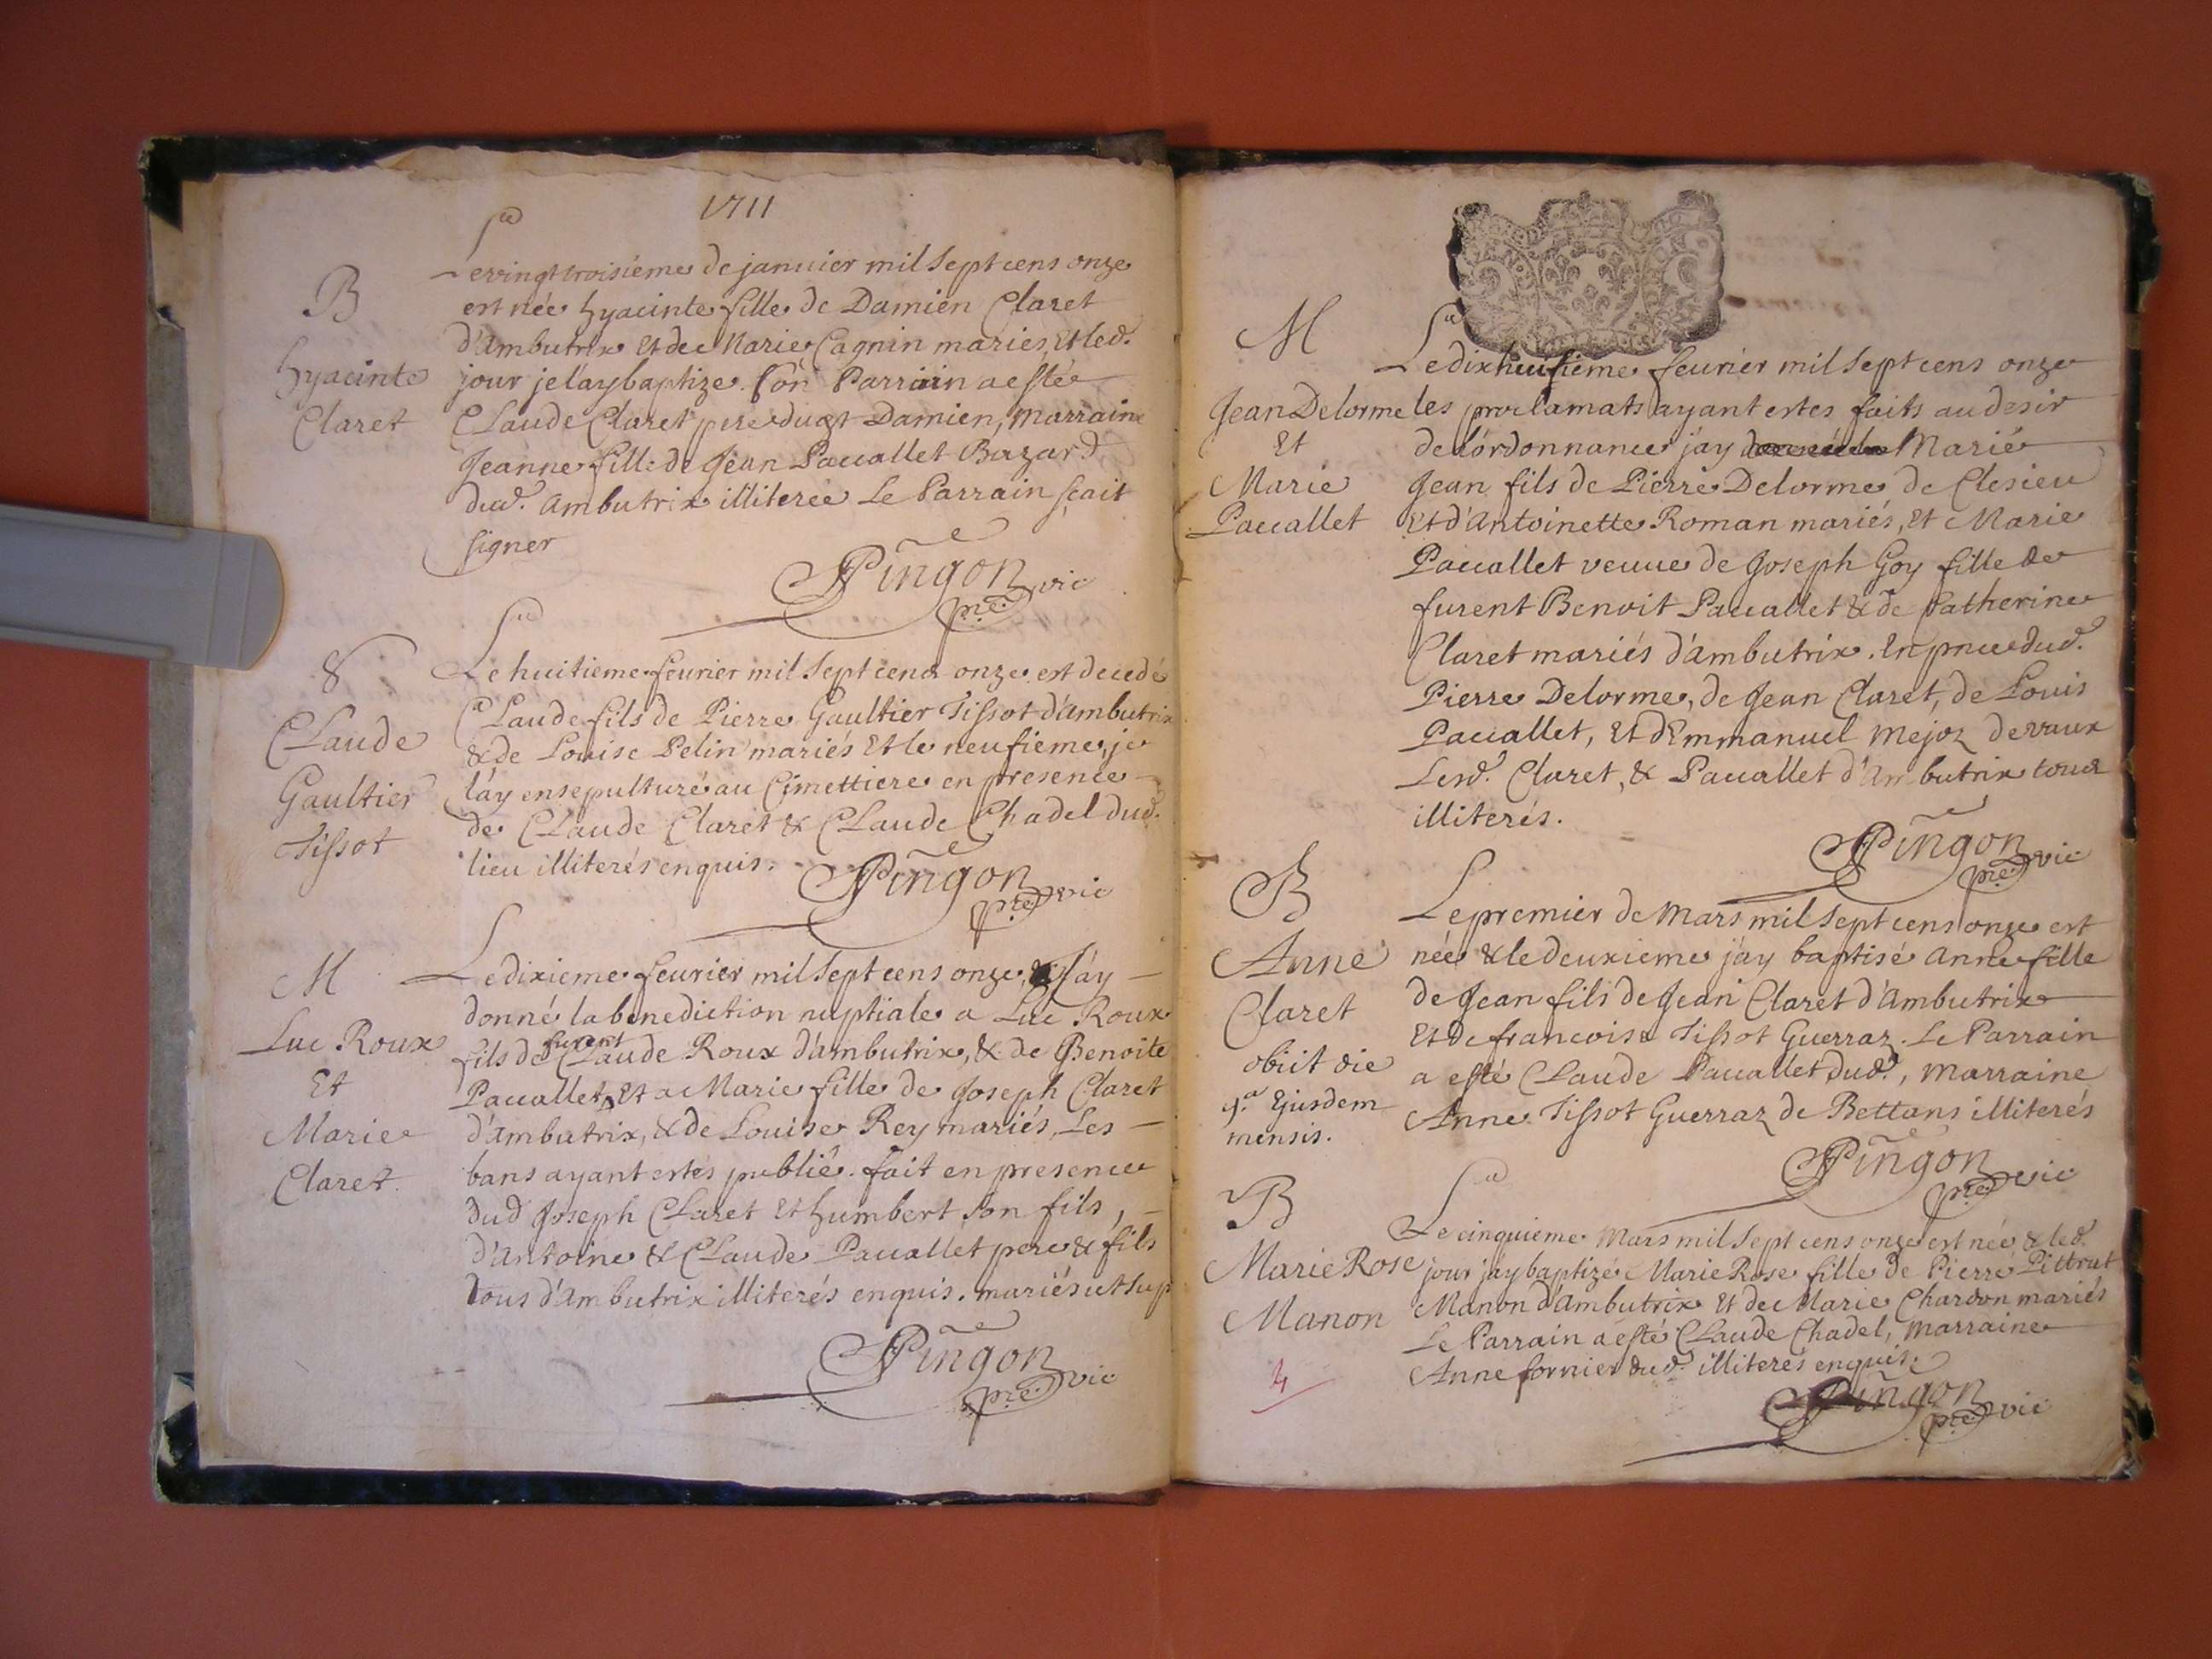 1711
B
hyacinte
Claret
Le vingt troisieme de januier mil sept cens onze
est née hyacinte fille de Damien Claret
d'ambutrix Et de Marie Cagnin mariés, Et led.
jour je l'ay baptize. son Parrain a esté
CLaude Claret pere dudt Damien, marraine
Jeanne fille de Jean Paccallet Bazard
dud. ambutrix illiterée Le Parrain sçait
signer
Pingon
pre. vic
Claude
Gaultier
Tissot
Le huitieme feurier mil sept cens onze est decedé
CLaude fils de Pierre Gaultier Tissot d'ambutrix
& de Louise Pelin mariés Et le neufieme je
l'ay ensepulturé au Cimettiere en presence
de CLaude Claret & CLaude Chadel dud.
lieu illiterés enquis.
Pingon
pre. vic
M
Luc Roux
Et
Marie
Claret
Le dixieme feurier mil sept cens onze, J'ay
donné la benediction nuptiale a Luc Roux
furent
fils de CLaude Roux d'ambutrix, & de Benoite
Paccallet, Et a Marie fille de Joseph Claret
d'ambutrix, & de Louise Rey mariés, Les
bans ayant estés publié. fait en presence
dud Joseph CLaret Et humbert son fils,
d'Antoine & CLaude Paccallet pere & fils
tous d'ambutrix illiterés enquis. mariés ut sup
Pingon
pre. vic
M
Jean Delorme
Et
Marie
Paccallet
Le dixhuitieme feurier mil sept cens onze
les proclamats ayant estes faits au desir
de l'ordonnance j'ay Marié
Jean fils de Pierre Delorme de Clesieu
Et d'Antoinette Roman mariés, Et Marie
Paccallet veuue de Joseph Goy fille de
furent Benoit Paccallet & de Catherine
Claret mariés d'ambutrix. En pnce dud.
Pierre Delorme, de Jean Claret, de Louis
Paccallet, Et d'Emmanuel Mejoz de vaux
Lesd. Claret, & Paccallet d'Ambutrix tous
illiterés.
Pingon
pre. vic
B
Anne
Claret
obiit die
9.a Ejusdem
mensis.
Le premier de Mars mil sept cens onze est
née & le deuxieme j'ay baptisé anne fille
de Jean fils de Jean Claret d'Ambutrix
Et de francoise Tissot Guerraz. Le Parrain
a esté CLaude Paccallet dud., marraine
Anne Tissot Guerraz de Bettans illiterés
Pingon
pre. vic
B
Marie Rose
Manon
Le cinquieme Mars mil sept cens onze est née & led.
jour j'ay baptizé Marie Rose fille de Pierre Pittrat
Manon d'Ambutrix Et de Marie Chardon mariés
Le Parrain a esté CLaude Chadel, marraine
Anne fornier dud. illiterés enquis.
Pingon
pre. vic